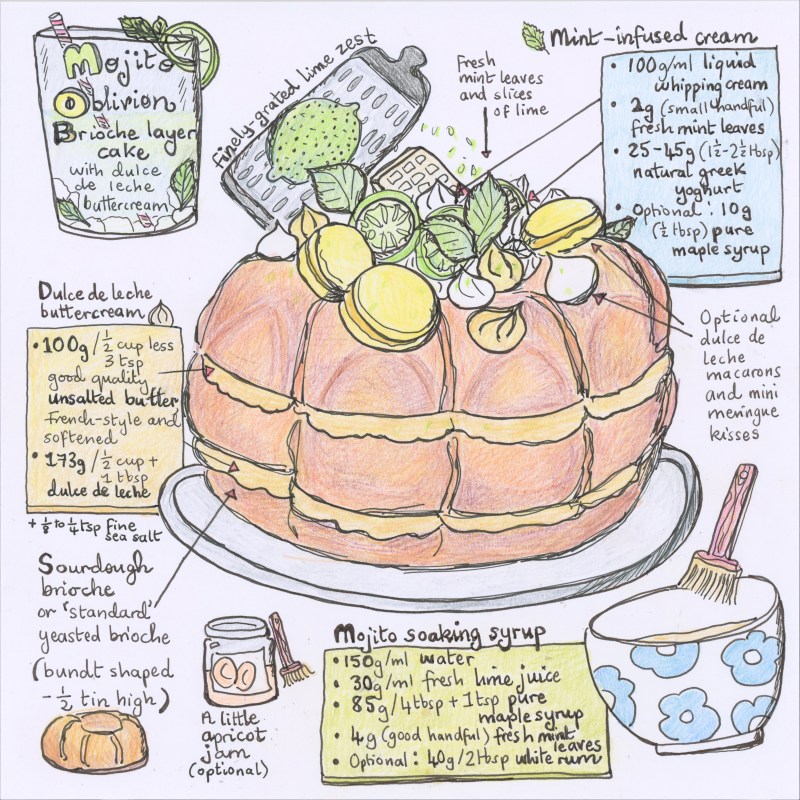 Mojito
Oblivion
Brioche layer
cake
with dulce
de leche
buttercream
Finely-grated lime zest
Fresh
mint leaves
and slices
of lime
Mint-infused cream
• 100g/ml liquid
whipping cream
• 2g (small handful)
fresh mint leaves
• 25-45g (1½-2½ tbsp)
natural greek
yoghurt
• Optional: 10g
(½ tbsp) pure
maple syrup
Dulce de leche
buttercream
• 100g/½ cup less
3 tsp
good quality
unsalted butter
French-style and
softened
• 173g/½ cup +
1 tbsp
dulce de leche
+ ⅛ to ¼ tsp fine
sea salt
Optional
dulce de
leche
macarons
and mini
meringue
kisses
Sourdough
brioche
or 'standard'
yeasted brioche
(bundt shaped
-½ tin high)
A little
apricot
jam
(optional)
Mojito soaking syrup
• 150g/ml water
• 30g/ml fresh lime juice
• 85g/4tbsp + 1tsp pure
maple syrup
• 4g (good handful) fresh mint
leaves
• Optional: 40g/2tbsp white rum